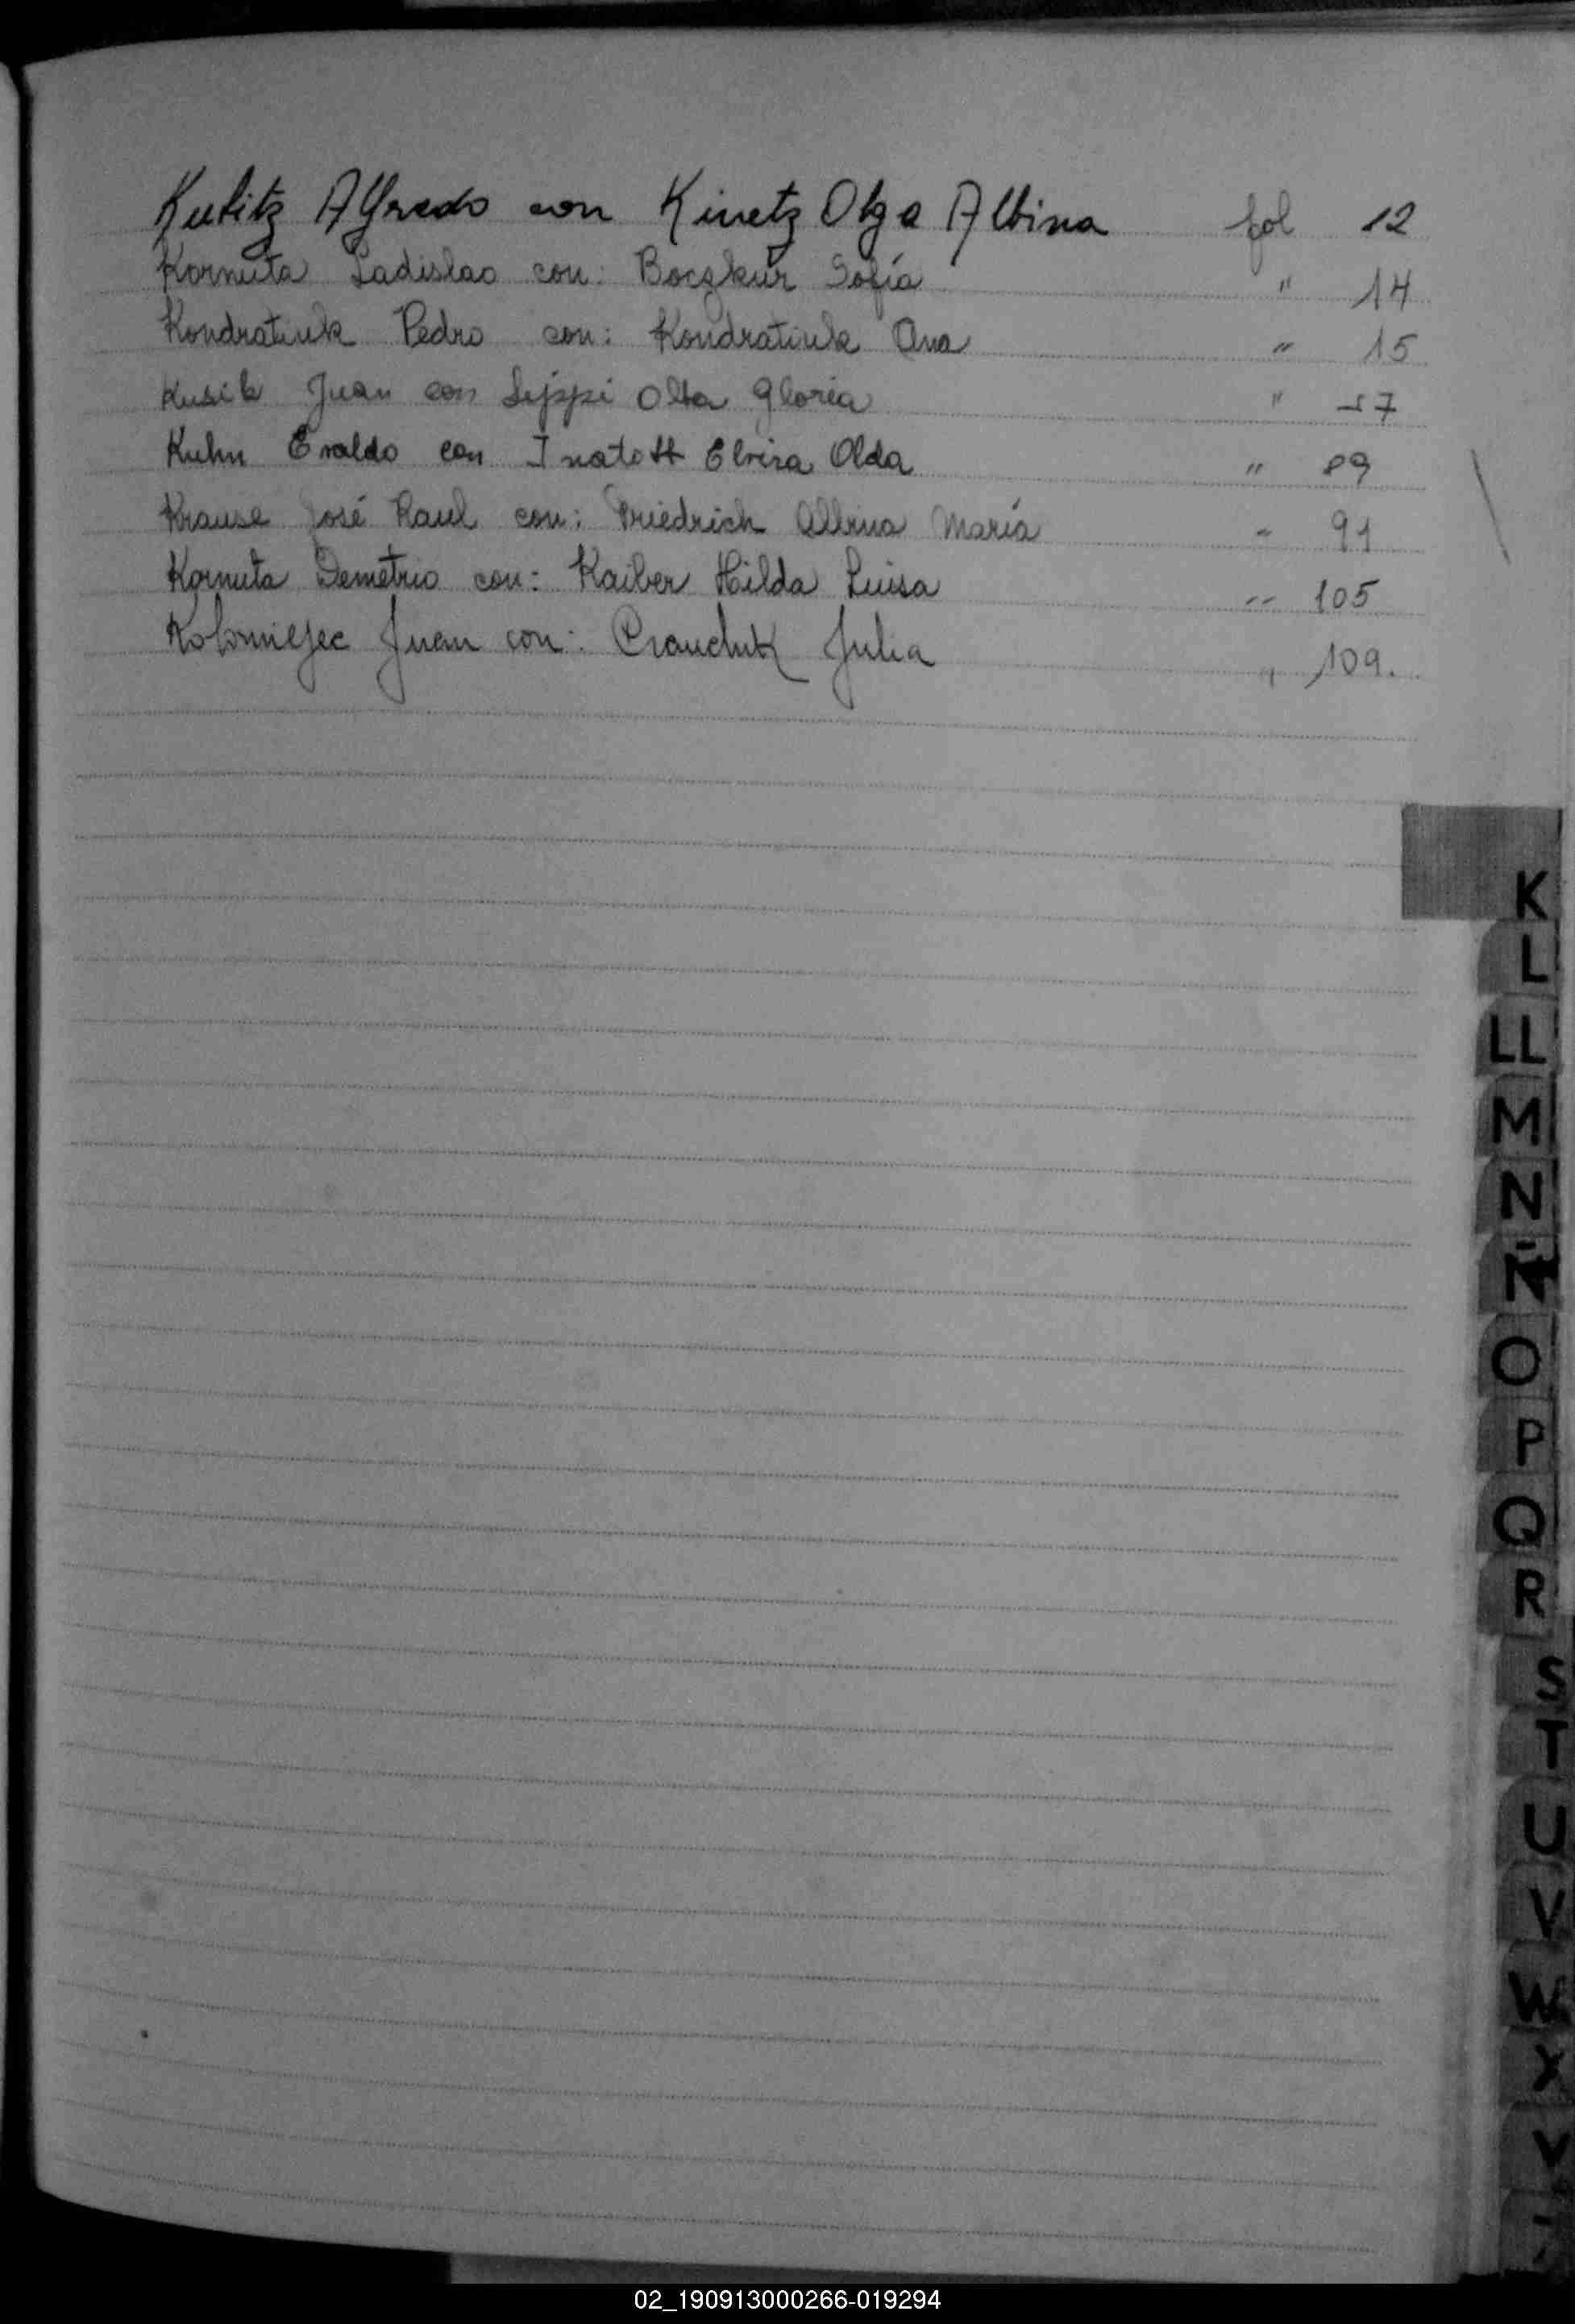 Kubitz Alfredo con Kinetz Olga Albina fol 12
Kornuta Ladislao con: Boczkur Sofía " 14
Kondratiuk Pedro con: Kondratiuk Ana " 15
Kusik Juan con Olta Gloria " 57
Kuhn Evaldo con Elvira Olda " 89
Krause José Raul con: Friedrich Albina María " 91
Kornuta Demetrio con: Kaiber Hilda Luisa " 105
Kolomiejec Juan con: Julia " 109.
K
L
LL
M
N
Ñ
O
P
Q
R
S
T
U
V
W
X
Y
02_190913000266-019294